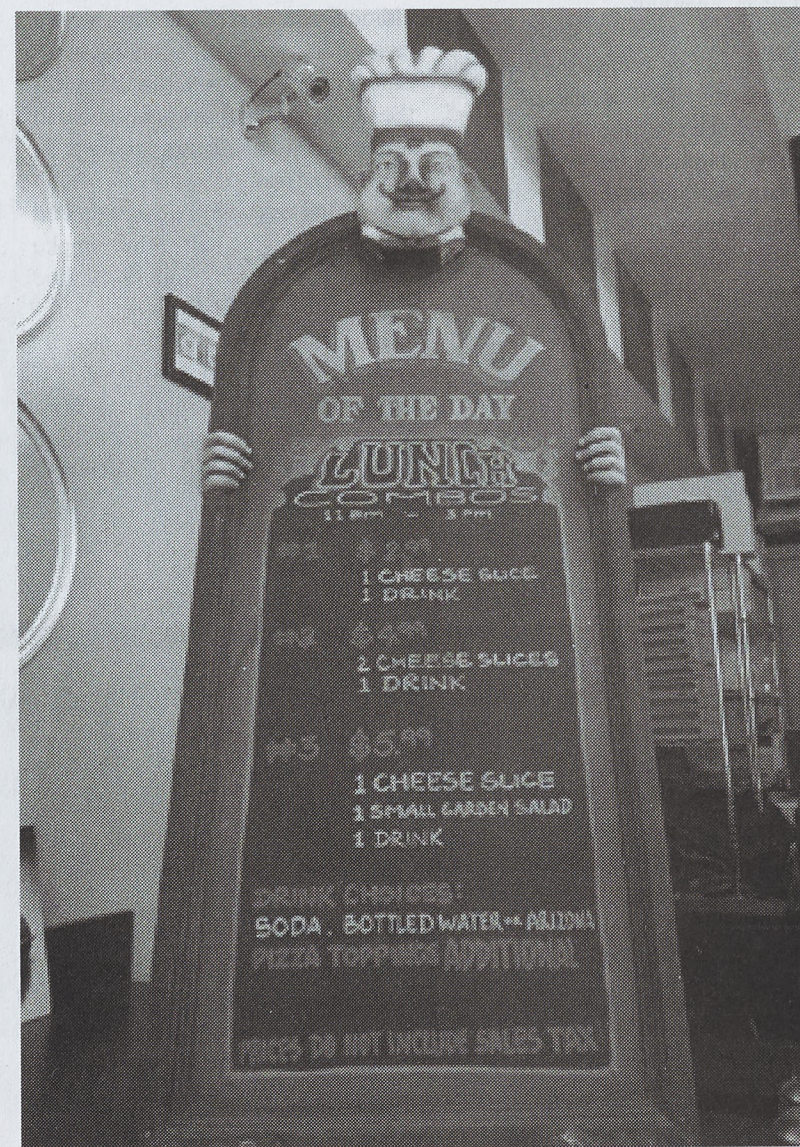 MENU
OF THE DAY
LUNCH
COMBOS
11 am - 3 pm
#1 $2.99
1 CHEESE SLICE
1 DRINK
#2 $4.99
2 CHEESE SLICES
1 DRINK
#3 $5.99
1 CHEESE SLICE
1 SMALL GARDEN SALAD
1 DRINK
DRINK CHOICES:
SODA, BOTTLED WATER OR ARIZONA
PIZZA TOPPINGS ADDITIONAL
PRICES DO NOT INCLUDE SALES TAX